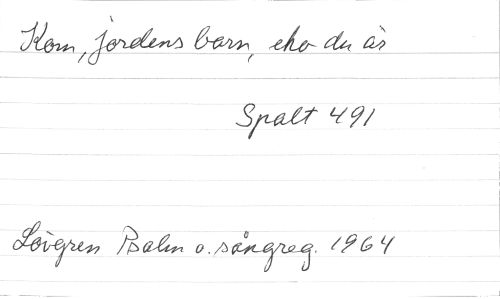 Kom, jordens barn, eho du är
Spalt 491
Lövgren Psalm o. sångreg. 1964